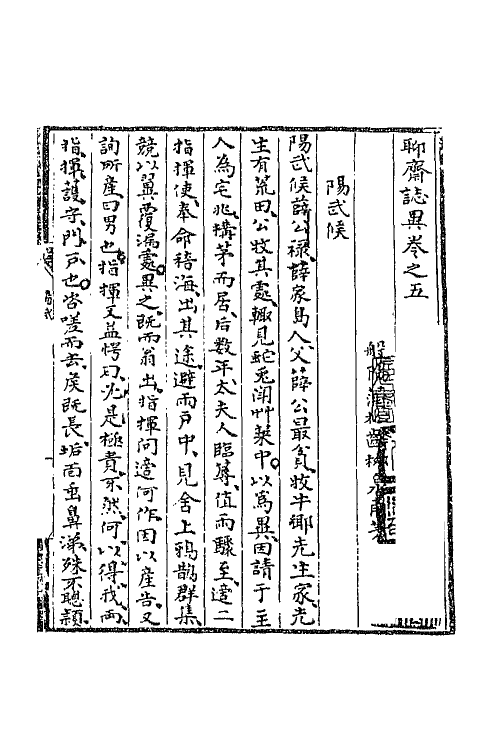 聊齋誌異卷之五
般陽蒲松齡
陽武侯
陽武侯薛公祿薛家島人父薛公最貧牧牛鄉先生家先
生有荒田公牧其處輒見蛇兔鬥艸萊中以為異因請于主
人為宅兆搆茅而居后数年太夫人臨蓐值雨驟至適二
指揮使奉命稽海出其途避雨戶中見舍上鴉鵲群集
競以翼覆漏處異之既而翁出指揮問適何作因以產告又
詢所產曰男也指揮又益愕曰尤是極貴不然何以得我兩
指揮護守門戶也咨嗟而去矦既長垢面垂鼻涕殊不聰穎